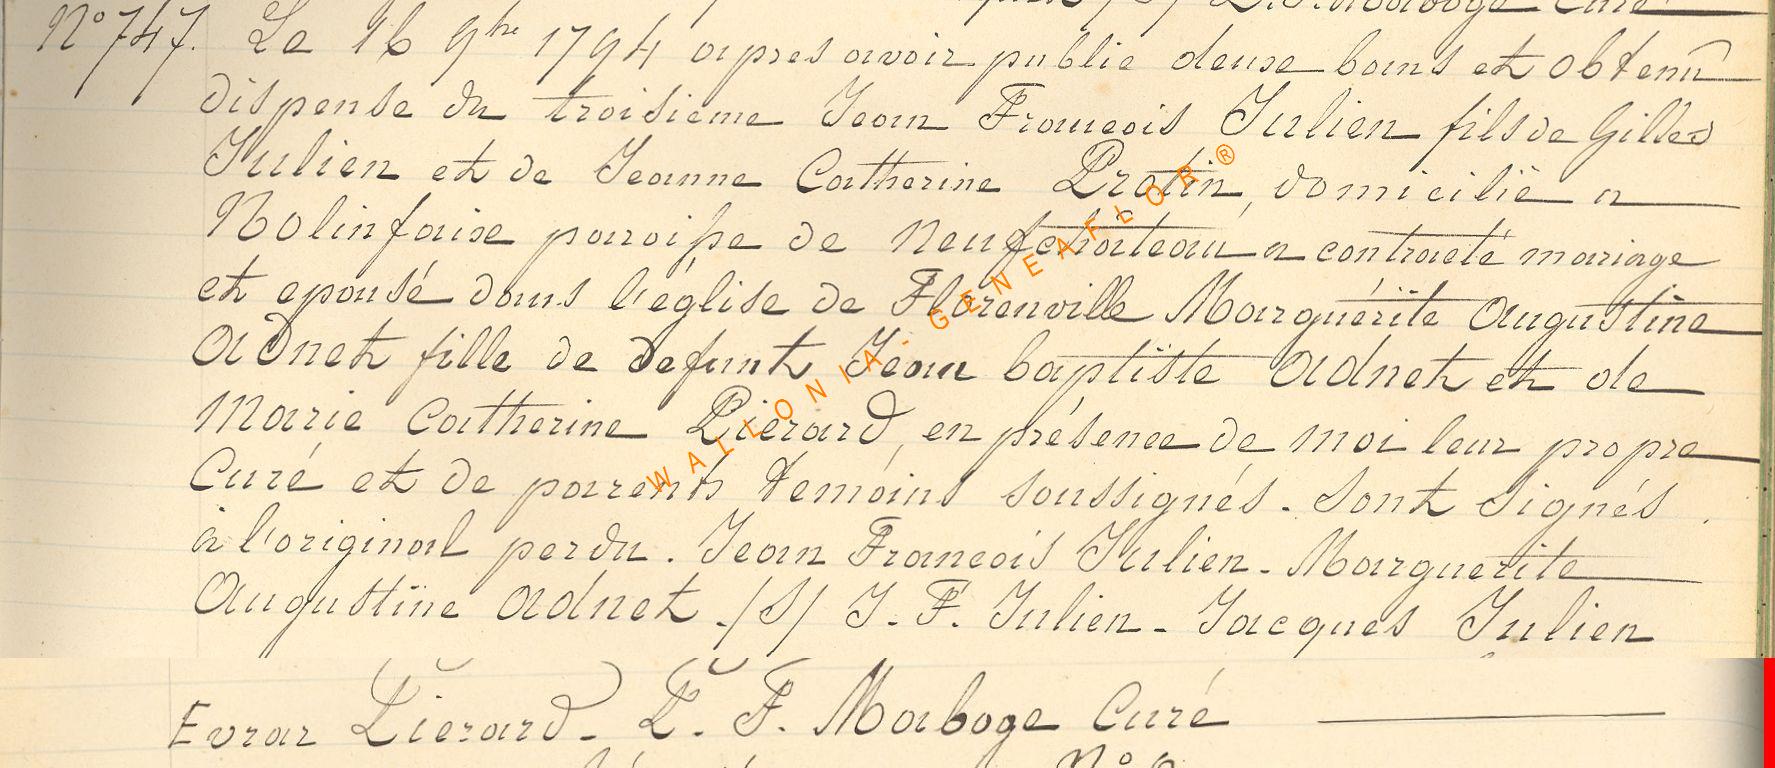 Curé
N° 747. Le 16 9bre 1794 apres avoir publie deuse bans et obtenu
dispense du troisieme Jean François Julien fils de Gilles
Julien et de Jeanne Catherine Pratin, domicilie a
Molinfaise paroisse de Neufchateau a contracté mariage
et epousé dans l'église de Florenville Marguérite Augustine
Adnet fille de defunt Jean baptiste Adnet et de
Marie Catherine Pierard, en présence de moi leur propre
Curé et de parents temoins soussignés. Sont signés
à l'original perdu. Jean François Julien - Marguerite
Augustine Adnet. /S/ J. F. Julien - Jacques Julien
Evrar Pierard - F. Maboge Curé
WALLONIA - GENEAFLOR ®